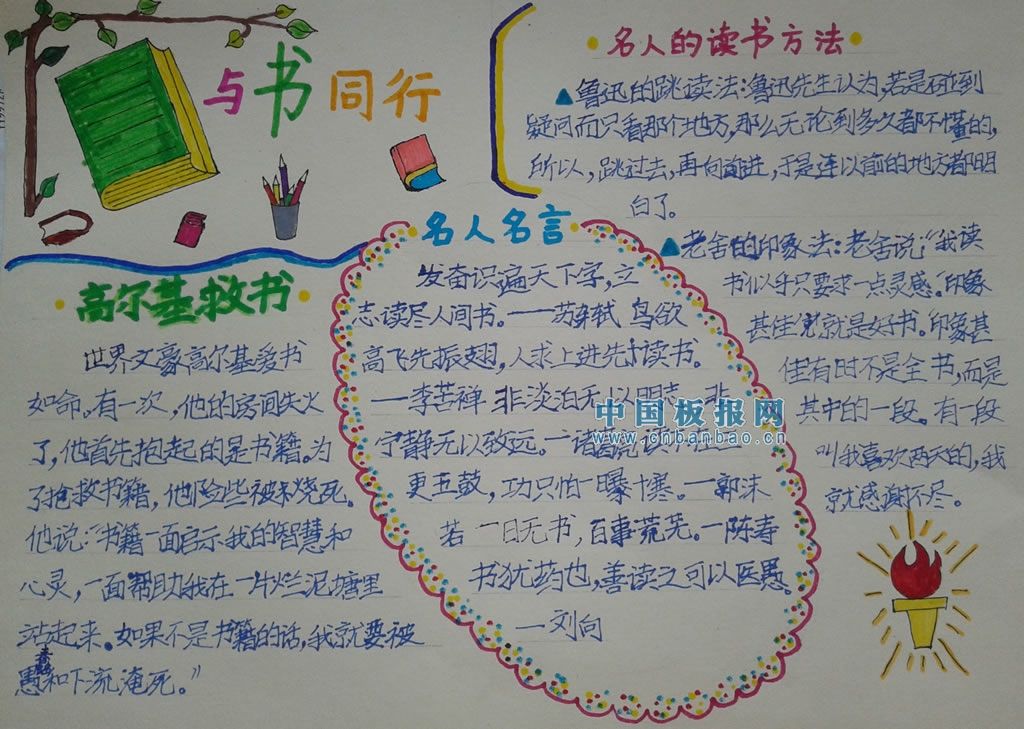 与书同行
名人的读书方法
▲鲁迅的跳读法:鲁迅先生认为,若是碰到
疑问而只看那个地方,那么无论到多久都不懂的,
所以,跳过去,再向前进,于是连以前的地方都明
白了。
▲老舍的印象法:老舍说:“我读
书似乎只要求一点灵感。”印象
甚佳它就是好书。“印象甚
佳有时不是全书,而是
其中的一段。有一段
叫我喜欢两天的,我
就感谢不尽。
名人名言
发奋识遍天下字,立
志读尽人间书。——苏轼 鸟欲
高飞先振翅,人求上进先读书。
——李苦禅 非淡泊无以明志,非
宁静无以致远。—诸葛亮 读不在三
更五鼓,功只怕一曝十寒。—郭沫
若 一日无书,百事荒芜。—陈寿
书犹药也,善读之可以医愚。
—刘向
高尔基救书
世界文豪高尔基爱书
如命。有一次,他的房间失火
了,他首先抱起的是书籍。为
了抢救书籍,他险些被烧死。
他说:“书籍一面启示我的智慧和
心灵,一面帮助我在一片烂泥塘里
站起来。如果不是书籍的话,我就要被
愚蠢和下流淹死。”
中国板报网
www.cnbanbao.cn